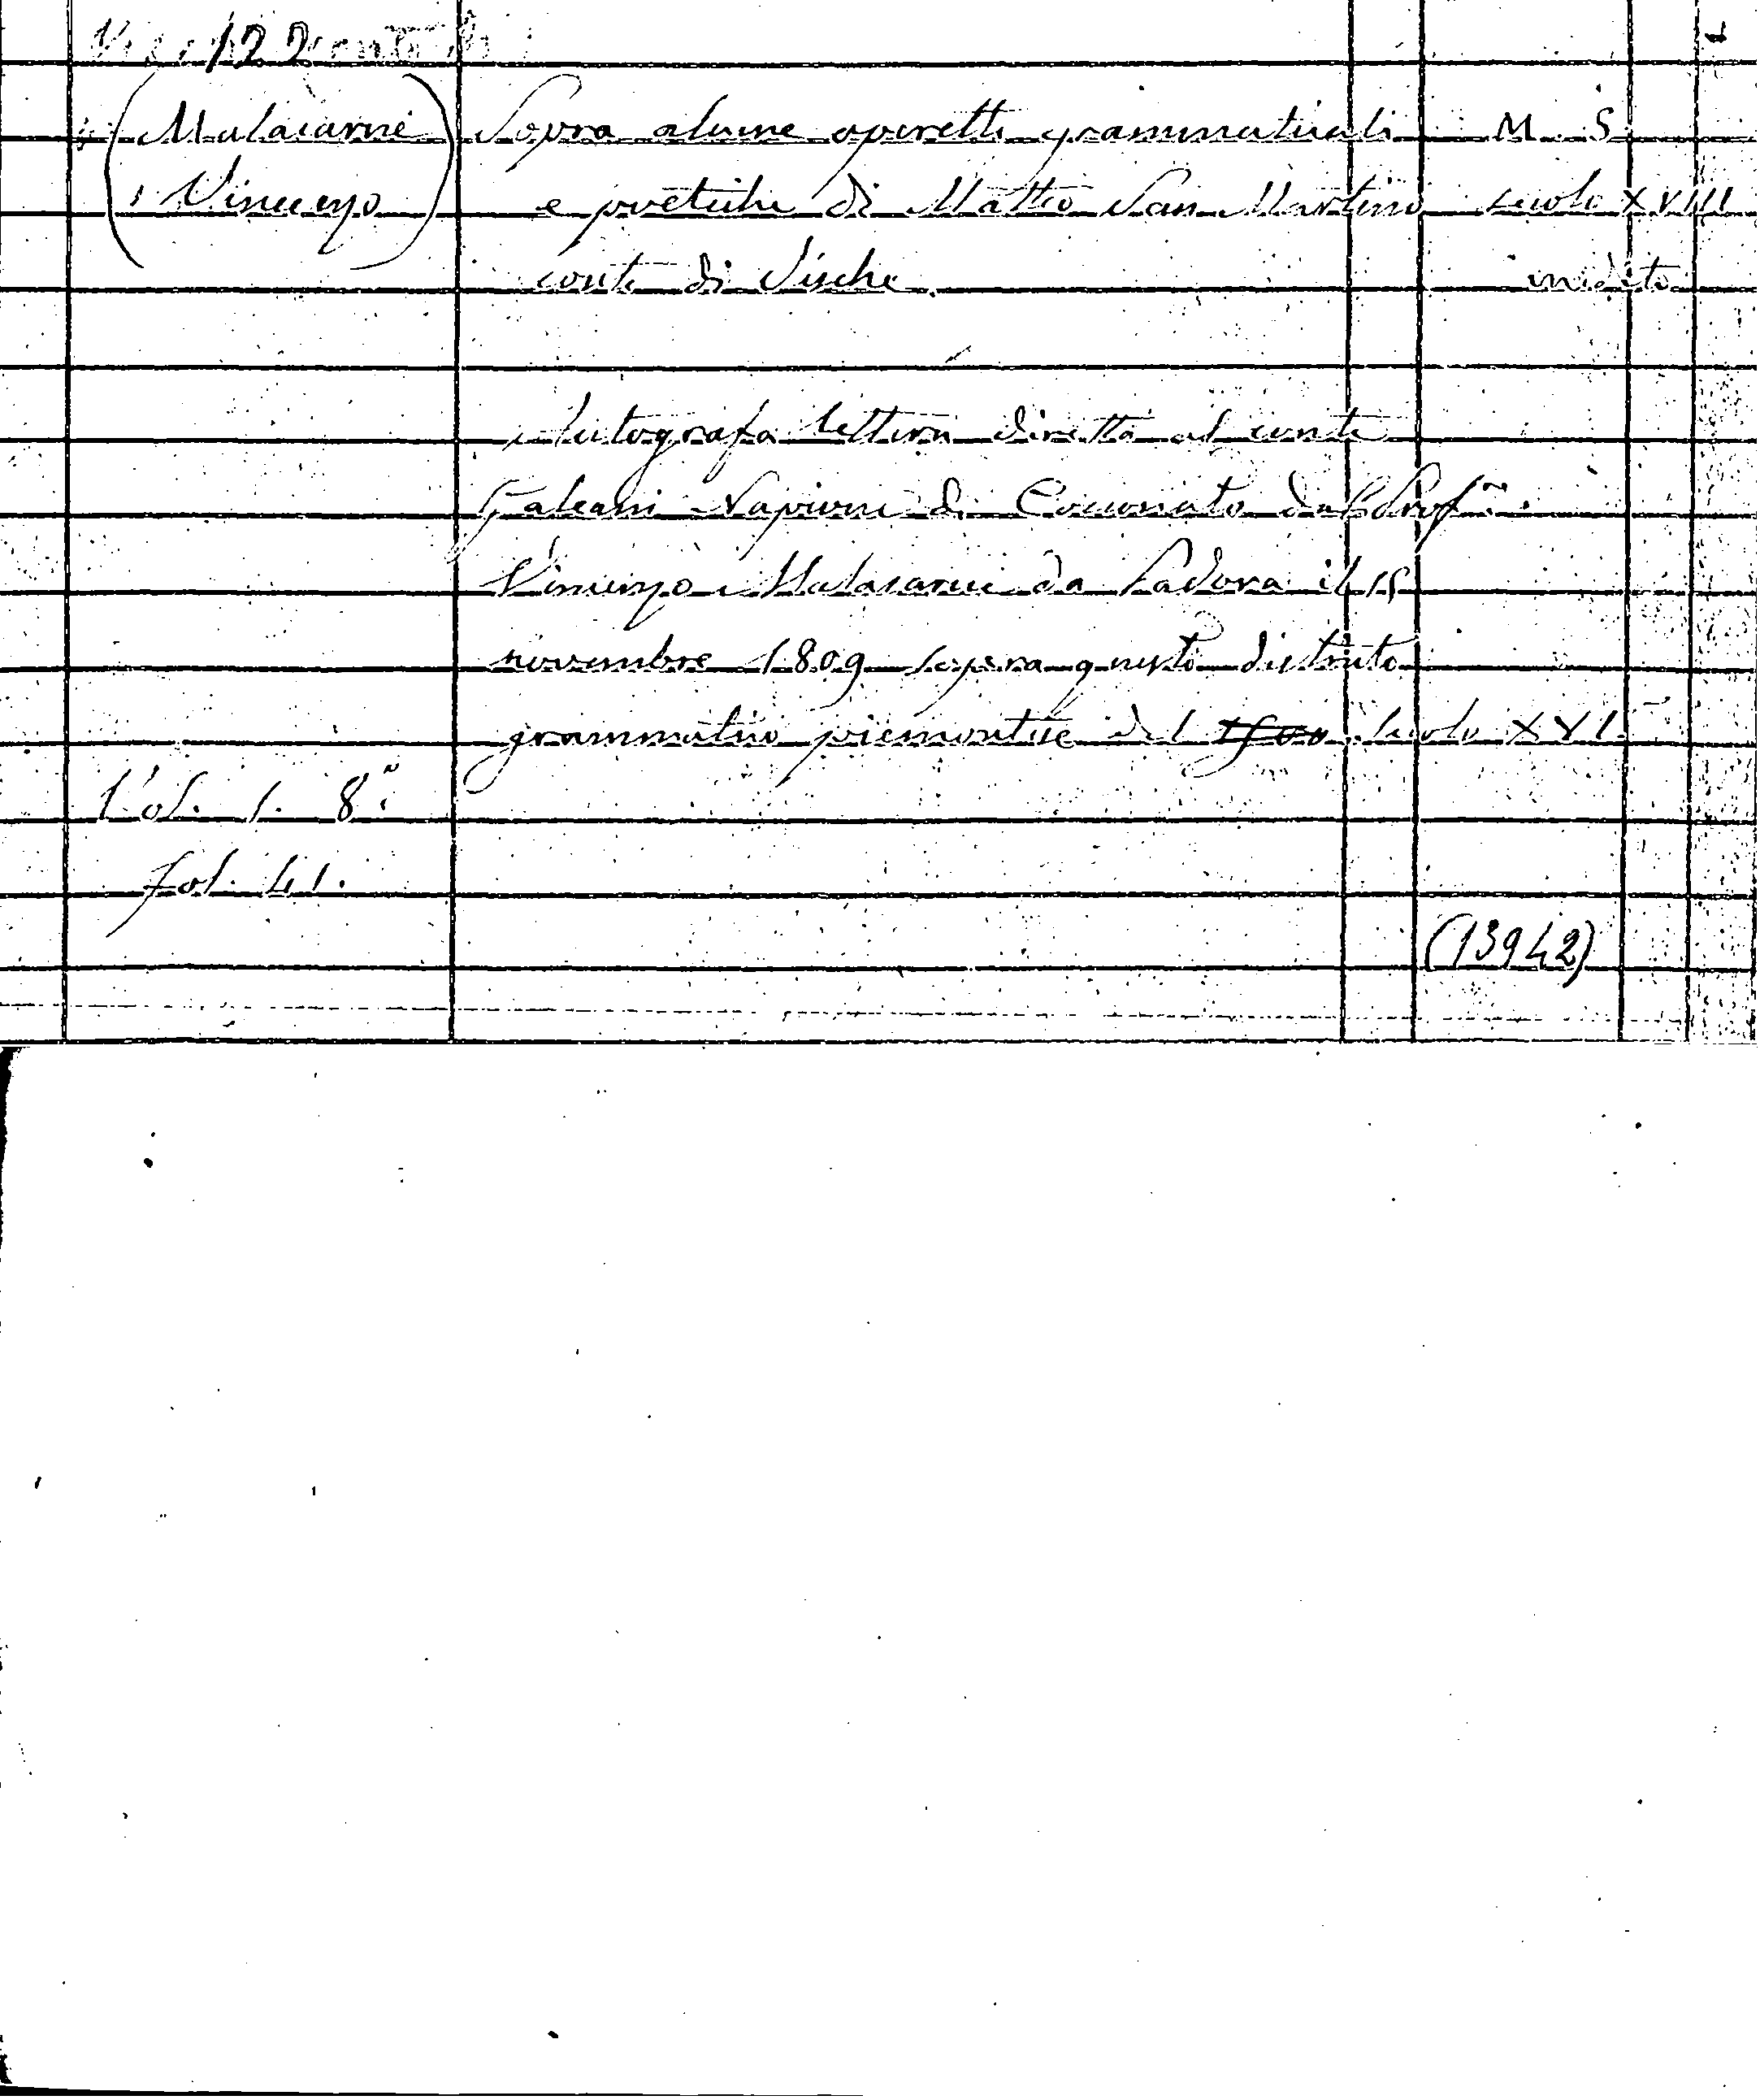 122
(Malacarne Sopra alcune operette grammaticali M. S.
Vincenzo) e poetiche di Matteo San Martino secolo XVIII
conte di Vische. inedito
Autografa lettera diretta al conte
Galeani Napione di Cocconato dal Prof.
Vincenzo Malacarne da Padova il 15
novembre 1809 sopra questo distinto
grammatico piemontese del 1500 secolo XVI.
Vol. 1. 8°.
fol. 41.
(13942)